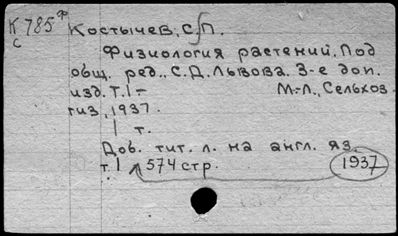 К 785 ф
с
Костычев, С.П.
Физиология растений. Под
общ. ред. С.Д. Львова. 3-е доп.
изд. Т.1 – М.-Л., Сельхоз-
гиз, 1937.
1 т.
Доб. тит. л. на англ. яз.
т.1 574 стр. 1937